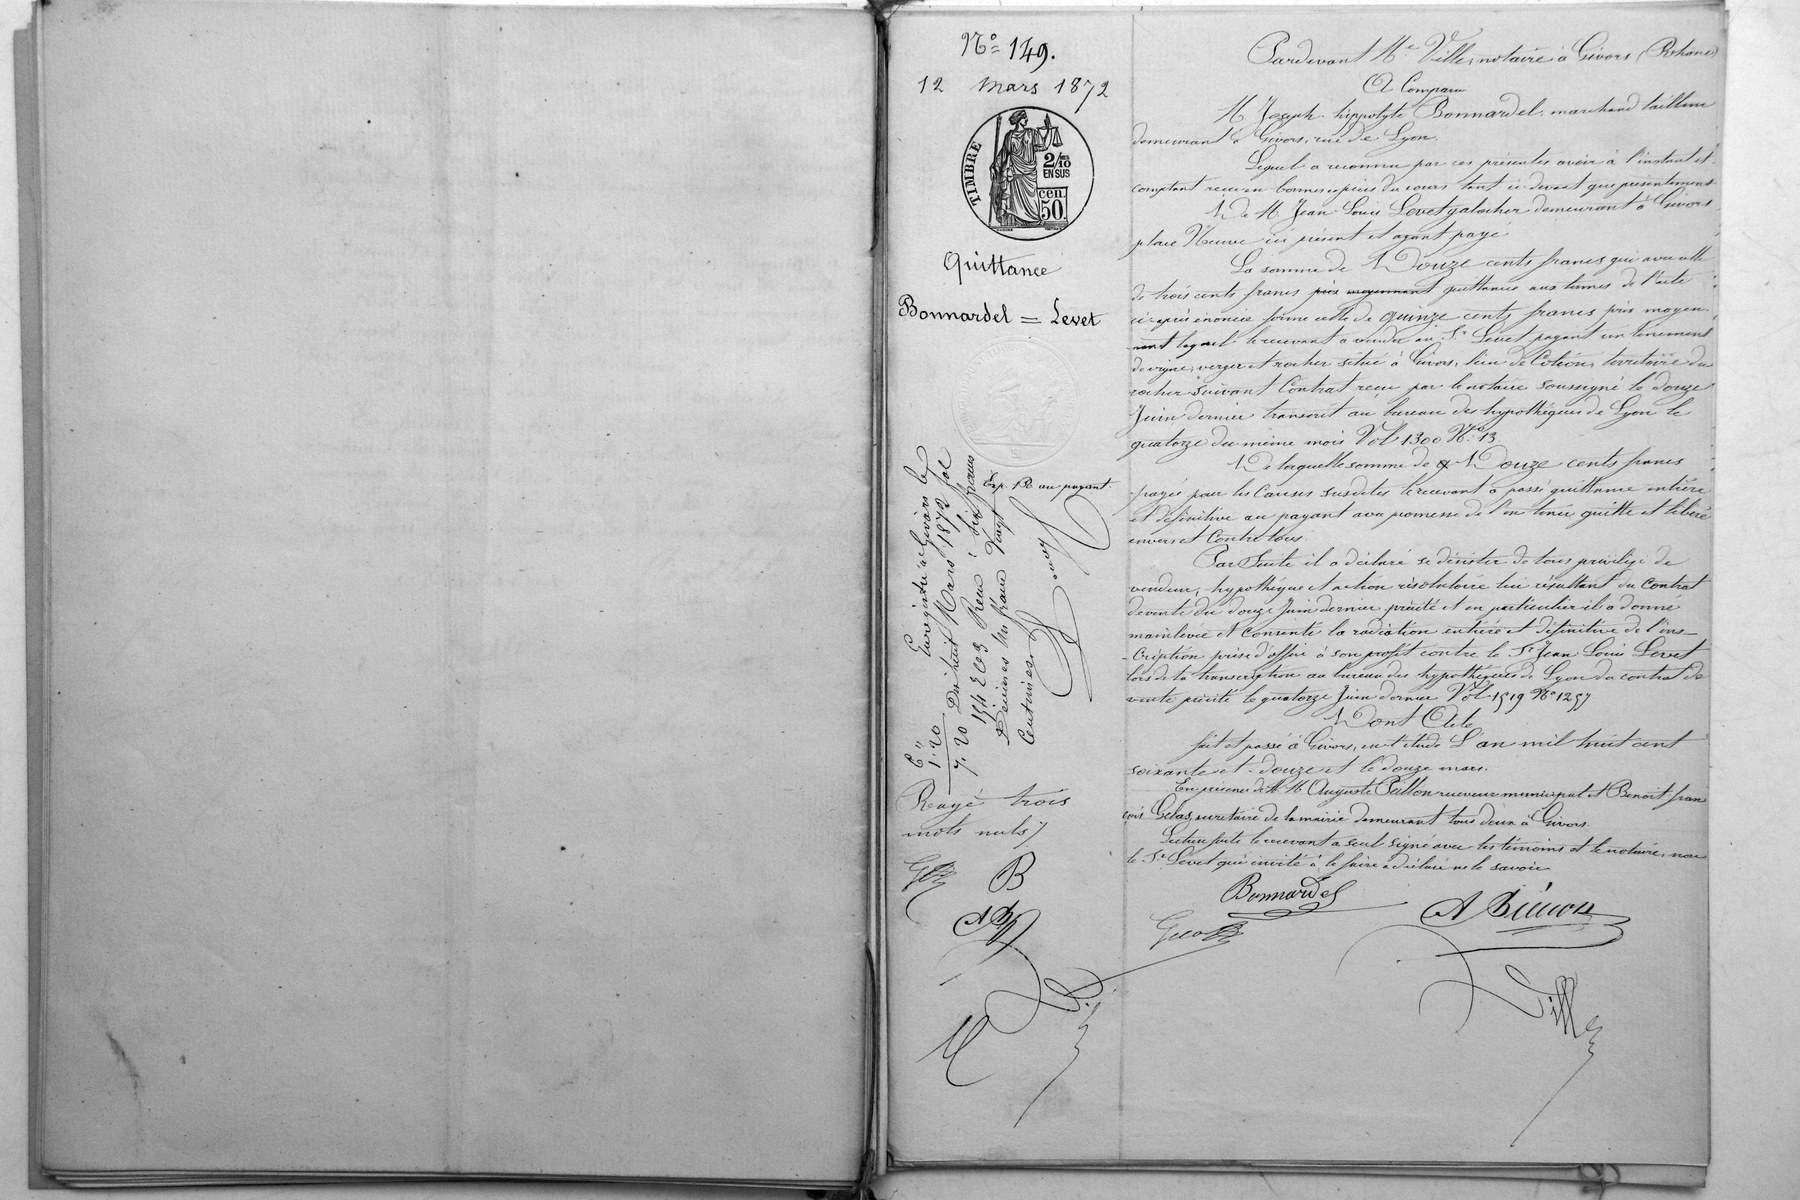 N° 149.
12 Mars 1872
TIMBRE
2/10 EN SUS
cen. 50.
Quittance
Bonnardel = Levet
Exp. 1 R au payant.
Enregistré à Givors le
Dix huit Mars 1872 fol
154 Reçu : six francs
Décimes Un franc Vingt
Centimes.
6 "
1 20
7. 20
Rayé trois
mots nuls
B
AB
Pardevant Me Ville, notaire à Givors (Rhône)
A Comparu
M Joseph hippolyte Bonnardel, marchand tailleur
demeurant à Givors, rue de Lyon.
Lequel a reconnu par ces présentes avoir à l'instant et
comptant reçu en bonnes espèces du cours tant ci-devant que présentement
De M Jean Louis Levet galocher demeurant à Givors
place Neuve ici présent et ayant payé
La somme de Douze cents francs qui avec celle
de trois cents francs prix moyennant quittancée aux termes de l'acte
ci-après énoncé forme celle de quinze cents francs prix moyen-
nant lequel le recevant a vendu au Sr Levet payant un tènement
de vigne, verger et rocher situé à Givors, lieu de Cotéon, territoire du
rocher suivant Contrat reçu par le notaire soussigné le douze
Juin dernier transcrit au bureau des hypothèques de Lyon le
quatorze du même mois Vol 1300 N° 13.
De laquelle somme de Douze cents francs
payée pour les Causes susdites le recevant a passé quittance entière
et définitive au payant avec promesse de l'en tenir quitte et libéré
envers et Contre tous.
Par Suite il a déclaré se désister de tous privilège de
vendeur, hypothèque et action résolutoire lui résultant du Contrat
de vente du douze Juin dernier précité et en particulier il a donné
mainlevée et Consenti la radiation entière et définitive de l'ins-
-cription prise d'office à son profit contre le Sr Jean Louis Levet
lors de la transcription au bureau des hypothèques de Lyon du contrat de
vente précité le quatorze Juin dernier Vol 1519 N° 1257
Dont Acte
fait et passé à Givors, en l'étude L'an mil huit cent
soixante et douze et le douze mars.
En présence de M. M. Auguste Pillon receveur municipal et Benoît fran
çois Gelas, secrétaire de la mairie demeurant tous deux à Givors.
Lecture faite le recevant a seul signé avec les témoins et le notaire, non
le Sr Levet qui invité à le faire a déclaré ne le savoir
Bonnardel
Gelas
Ville